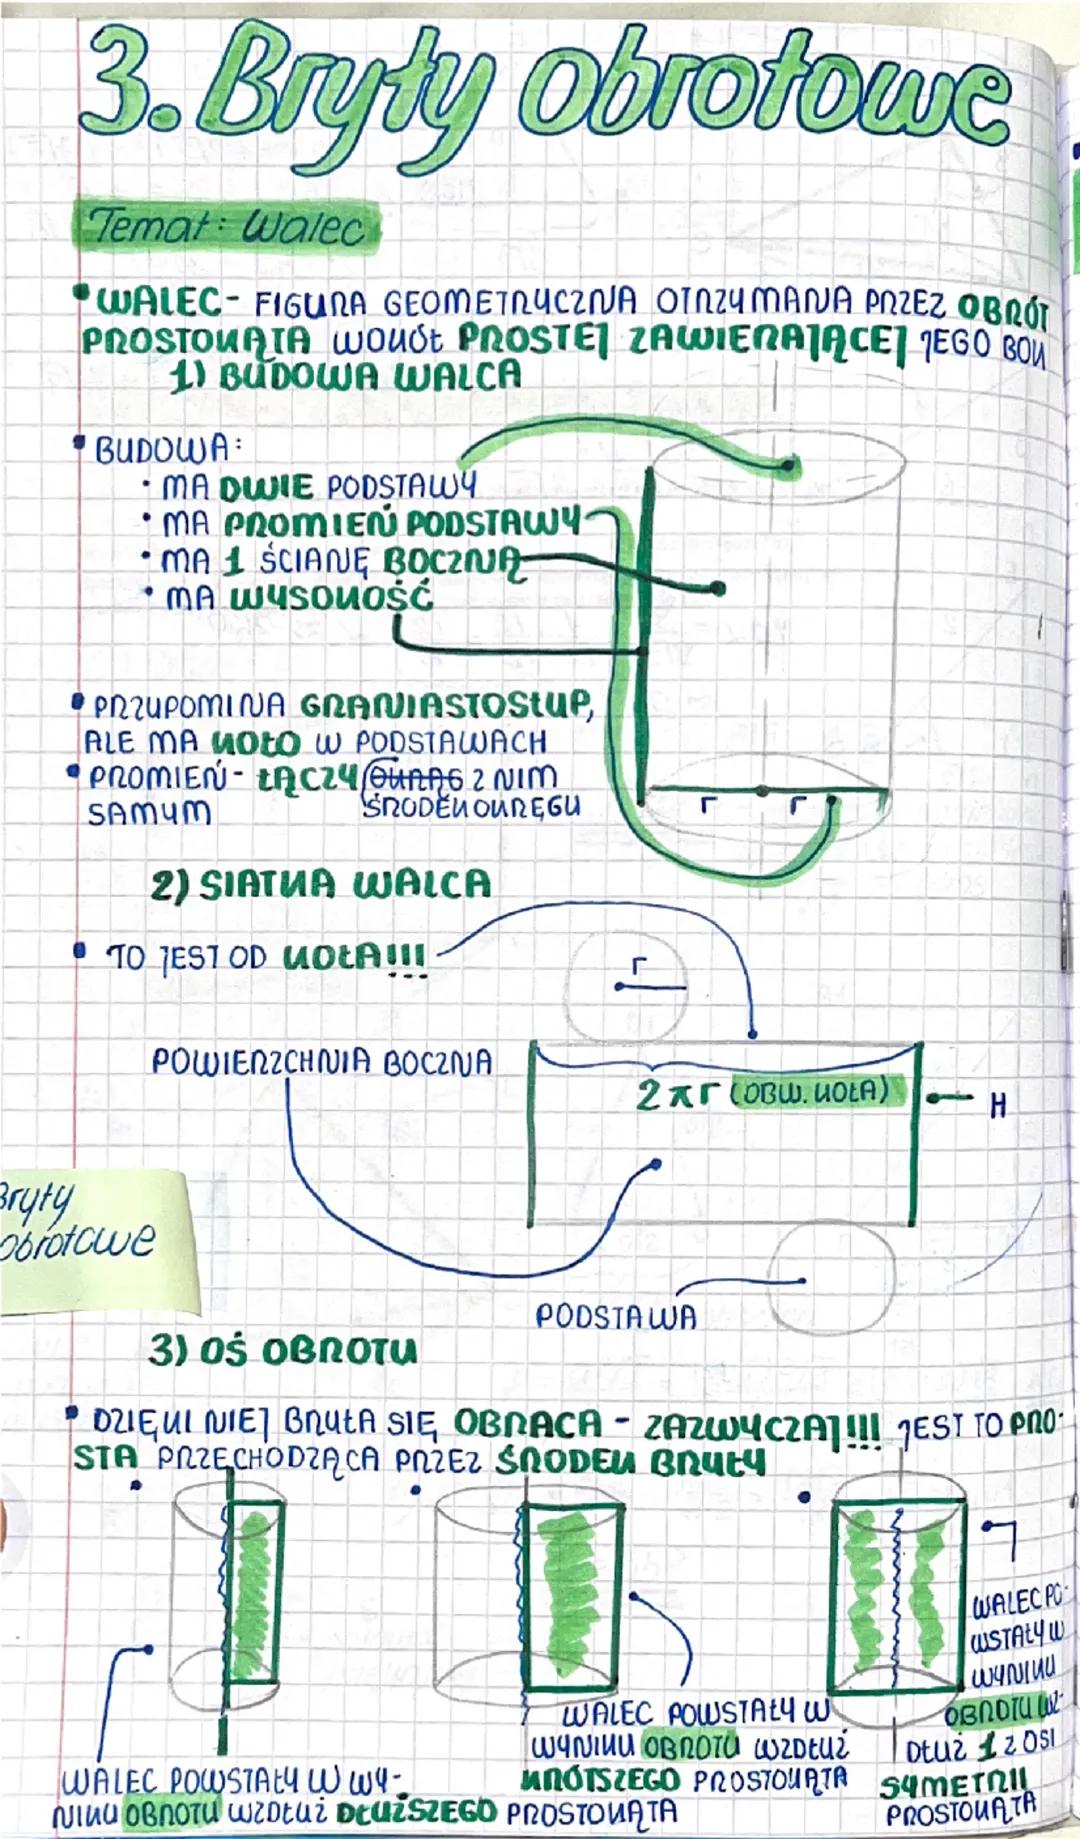 3. Bryły obrotowe
Temat: Walec
WALEC - FIGURA GEOMETRYCZNA OTRZYMANA PRZEZ OBRÓT
PROSTOKĄTA WOKÓŁ PROSTEJ ZAWIERAJĄCEJ JEGO BOK
1) BUDOWA WALCA
BUDOWA:
MA DWIE PODSTAWY
MA PROMIEŃ PODSTAWY
MA 1 ŚCIANĘ BOCZNĄ
MA WYSOKOŚĆ
PRZYPOMINA GRANIASTOSŁUP,
ALE MA KOŁO W PODSTAWACH
PROMIEŃ - ŁĄCZY OKRĄG Z NIM
SAMYM ŚRODEK OKRĘGU
r r
2) SIATKA WALCA
TO JEST OD KOŁA!!!
r
POWIERZCHNIA BOCZNA
2πr (OBW. KOŁA)
H
Bryły
obrotowe
PODSTAWA
3) OŚ OBROTU
DZIĘKI NIEJ BRYŁA SIĘ OBRACA - ZAZWYCZAJ!!! JEST TO PRO-
STA PRZECHODZĄCA PRZEZ ŚRODEK BRYŁY
WALEC POWSTAŁY W WY-
NIKU OBROTU WZDŁUŻ DŁUŻSZEGO PROSTOKĄTA
WALEC POWSTAŁY W
WYNIKU OBROTU WZDŁUŻ
KRÓTSZEGO PROSTOKĄTA
WALEC PO-
WSTAŁY W
WYNIKU
OBROTU WZ-
DŁUŻ 1 Z OSI
SYMETRII
PROSTOKĄTA